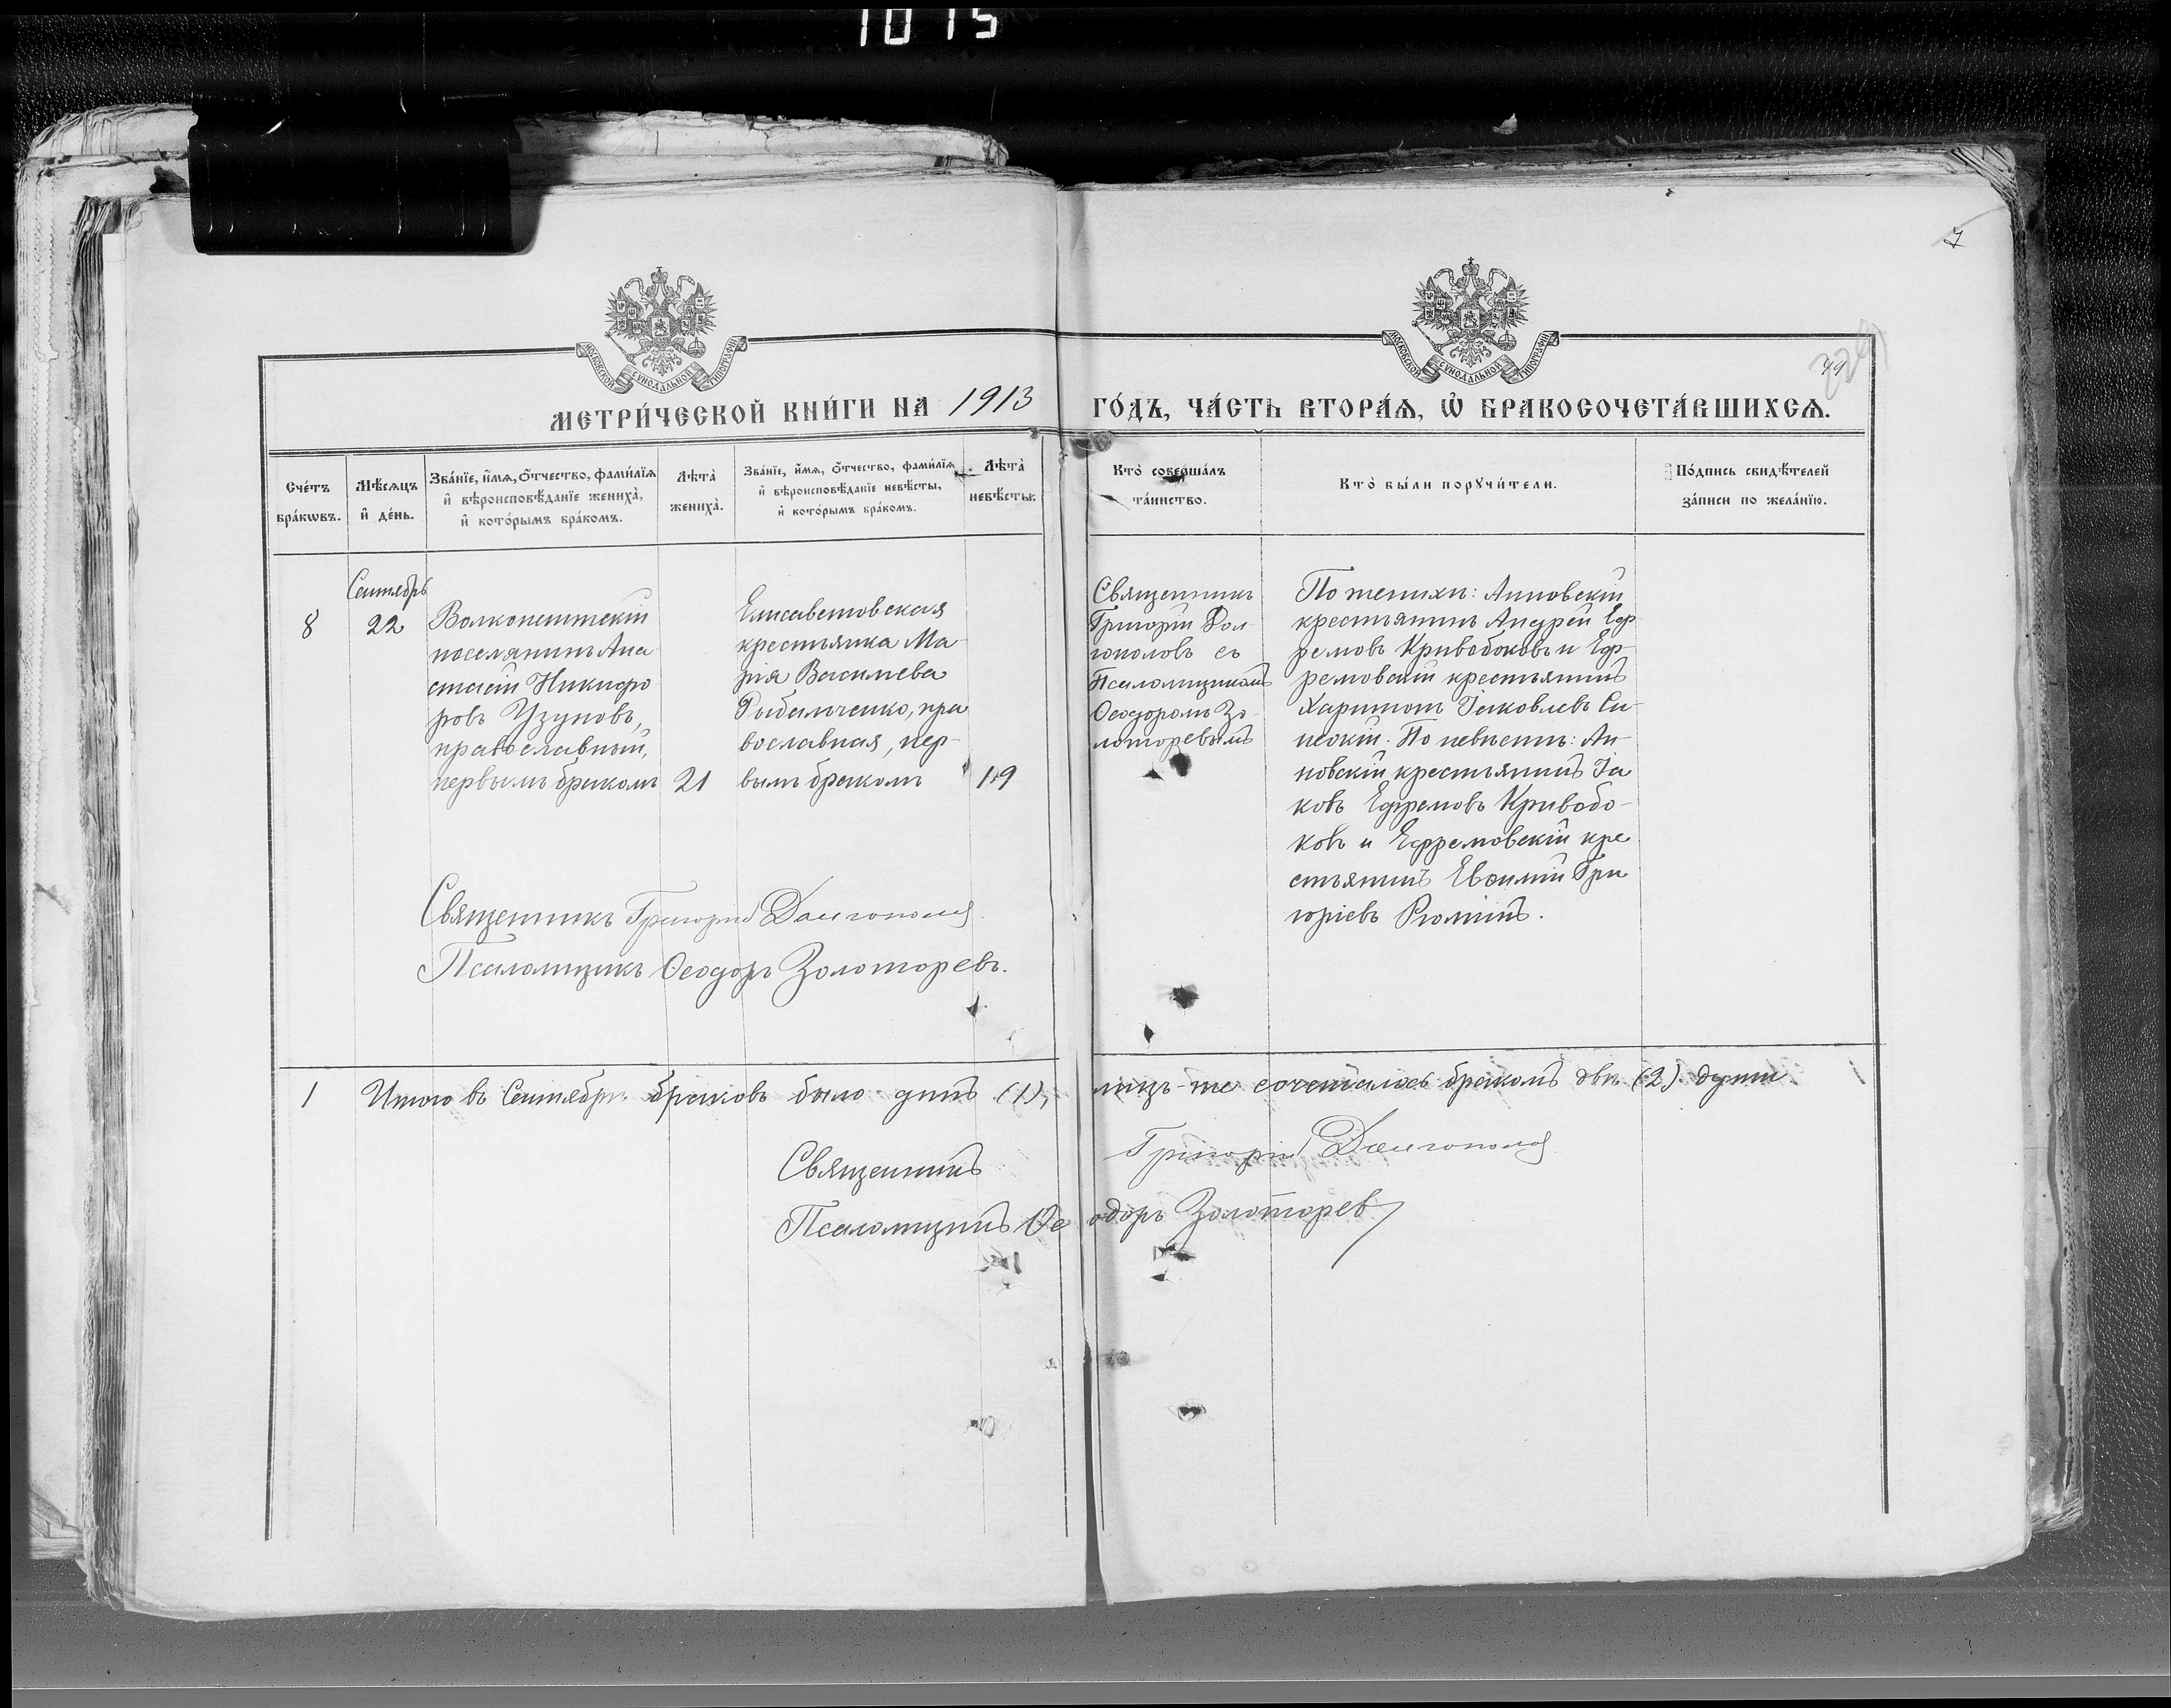 1015
7
МОСКОВСКОЙ СѴНОДАЛЬНОЙ ТИПОГРАФІИ
МОСКОВСКОЙ СѴНОДАЛЬНОЙ ТИПОГРАФІИ
МЕТРИ́ЧЕСКОЙ КНИ́ГИ НА 1913 ГО́ДЪ, ЧА́СТЬ ВТОРА́Ѧ, Ѡ҆ БРАКОСОЧЕТА́ВШИХСѦ.
Сче́тъ
бра́кѡвъ.
Мѣ́сѧцъ
и҆ де́нь.
Зва́нїе, и҆́мѧ, ѻ҆́тчество, фами́лїѧ
и҆ вѣроисповѣ́данїе жениха̀,
и҆ кото́рымъ бра́комъ.
Лѣта̀
жениха̀.
Зва́нїе, и҆́мѧ, ѻ҆́тчество, фами́лїѧ
и҆ вѣроисповѣ́данїе невѣ́сты,
и҆ кото́рымъ бра́комъ.
Лѣта̀
невѣ́сты.
Кто̀ соверша́лъ
та́инство.
Кто̀ бы́ли порꙋчи́тели.
По́дпись свидѣ́телей
за́писи по жела́нїю.
8
Сентябрь
22
Волконештскій
поселянинъ Ана
стасій Никифо
ровъ Узуновъ,
православный,
первымъ бракомъ
21
Елисаветовская
крестьянка Ма-
рія Васильева
Рыбальченко, пра
вославная, пер-
вымъ бракомъ
19
Священникъ
Григорій Дол-
гополовъ съ
Псаломщикомъ
Ѳеодоромъ Зо-
лоторевымъ
По женихѣ: Анновскій
крестьянинъ Андрей Еф-
ремовъ Кривобоковъ и Еф-
ремовскій крестьянинъ
Харитонъ Іаковлевъ
По невѣстѣ: Ан-
новскій крестьянинъ Іа
ковъ Ефремовъ Кривобо-
ковъ и Ефремовскій кре
стьянинъ Евѳимій Гри
горіевъ Рюминъ.
Священникъ Григорій Долгополов
Псаломщикъ Ѳеодоръ Золоторевъ.
1 Итого въ Сентябрѣ браковъ было динъ (1), лицъ-же сочеталось бракомъ двѣ (2) души
Священникъ Григорій Долгополов
Псаломщикъ Ѳеодоръ Золоторев